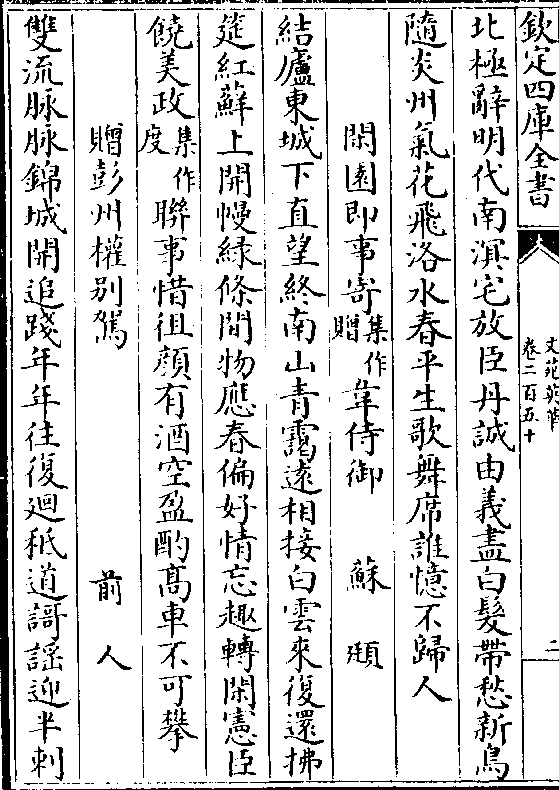 欽定四庫全書
文苑英華
卷二百五十
二
北極辭明代南溟宅放臣丹誠由義盡白髮帶愁新鳥
隨炎州氣花飛洛水春平生歌舞席誰憶不歸人
閑園即事寄集作贈韋侍御 蘇頲
結廬東城下直望終南山青靄遠相接白雲來復還拂
筵紅蘇上開幔緑條間物應春偏好情忘趣轉閑憲臣
饒美政集作度聯事惜徂顔有酒空盈酌髙車不可攀
贈彭州權别駕 前人
雙流脉脉錦城開追踐年年往復廻秪道謌謡迎半刺